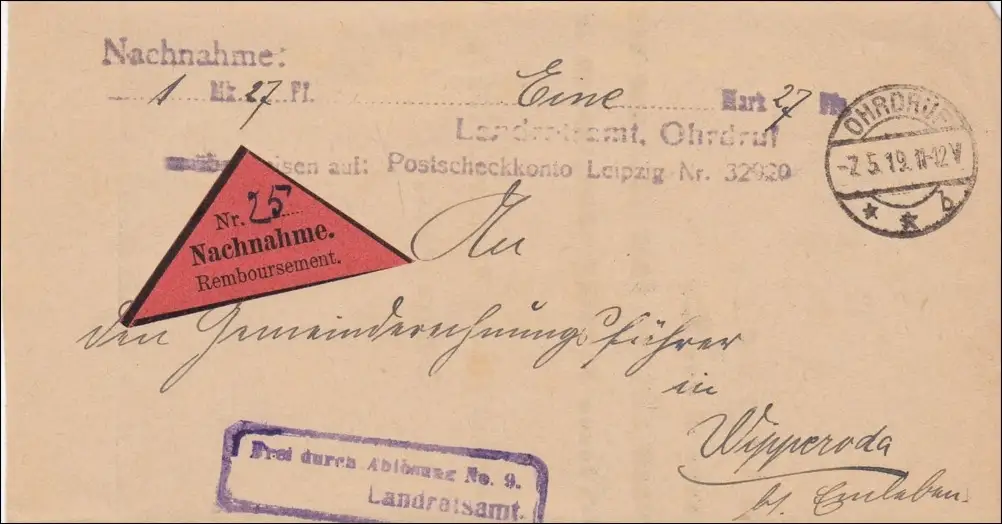 Nachnahme:
1 Mk 27 Pf. Eine Mark 27 Pfg
Landratsamt, Ohrdruf
eisen auf: Postscheckkonto Leipzig Nr. 32920
OHRDRUF
-7.5.19.11-12V
* * b
Nr. 25
Nachnahme.
Remboursement.
An
den Gemeinderechnungsführer
in
Wipperoda
bz. Emleben
Frei durch Ablösung No. 9.
Landratsamt.